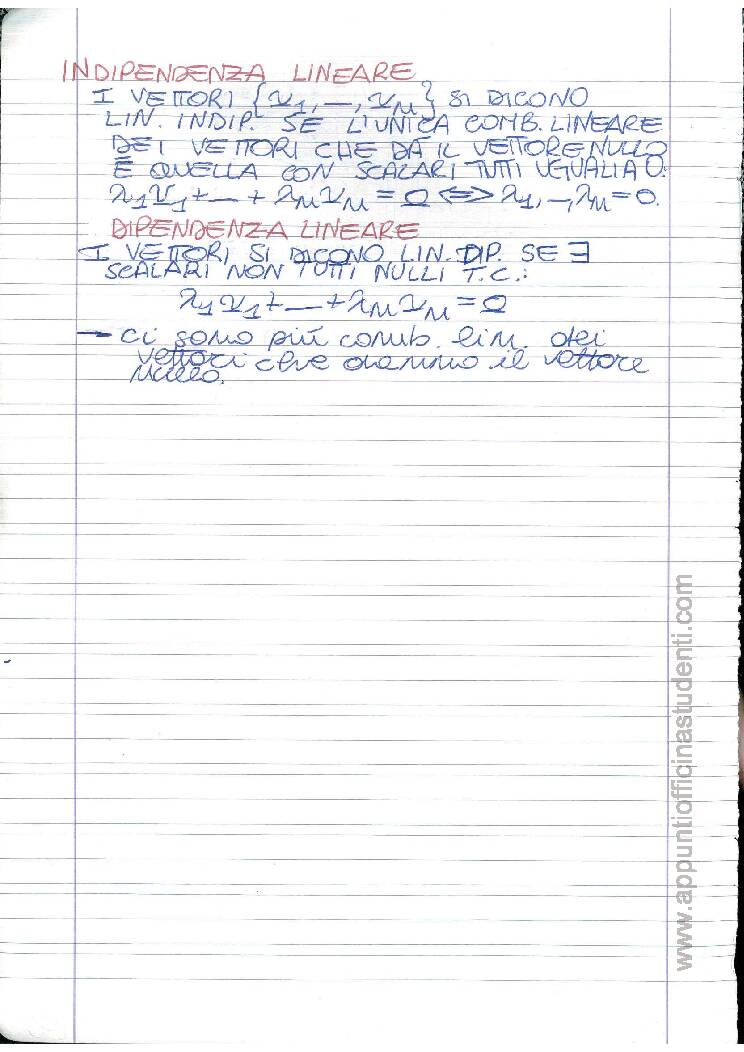 INDIPENDENZA LINEARE
I VETTORI {v1, _, vn} SI DICONO
LIN. INDIP. SE L'UNICA COMB. LINEARE
DEI VETTORI CHE DÀ IL VETTORE NULLO
È QUELLA CON SCALARI TUTTI UGUALI A 0.
λ1v1+_+λnvn=0 <=> λ1,_,λn=0.
DIPENDENZA LINEARE
I VETTORI SI DICONO LIN. DIP. SE ∃
SCALARI NON TUTTI NULLI T.C.:
λ1v1+_+λnvn=0
— ci sono più comb. lin. dei
vettori che danno il vettore
nullo.
www.appuntiofficinastudenti.com